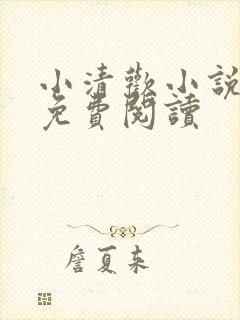 小清歡小說
免費閱讀
詹夏來